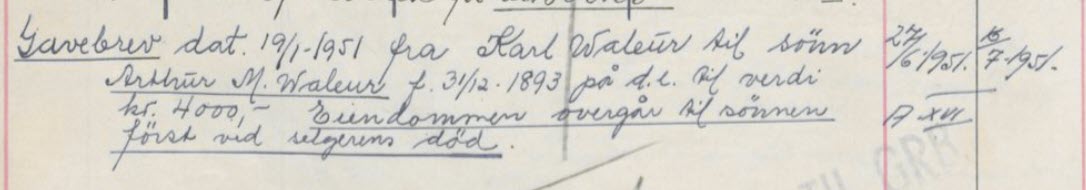 Gavebrev dat. 19/1-1951 fra Karl Waleur til sönn
Arthur M. Waleur f. 31/12-1893 på d.e. til verdi
kr. 4000,- Eiendommen overgår til sönnen
först ved selgerens död.
27/6-1951. 
7-1951.
A XVI
GRB